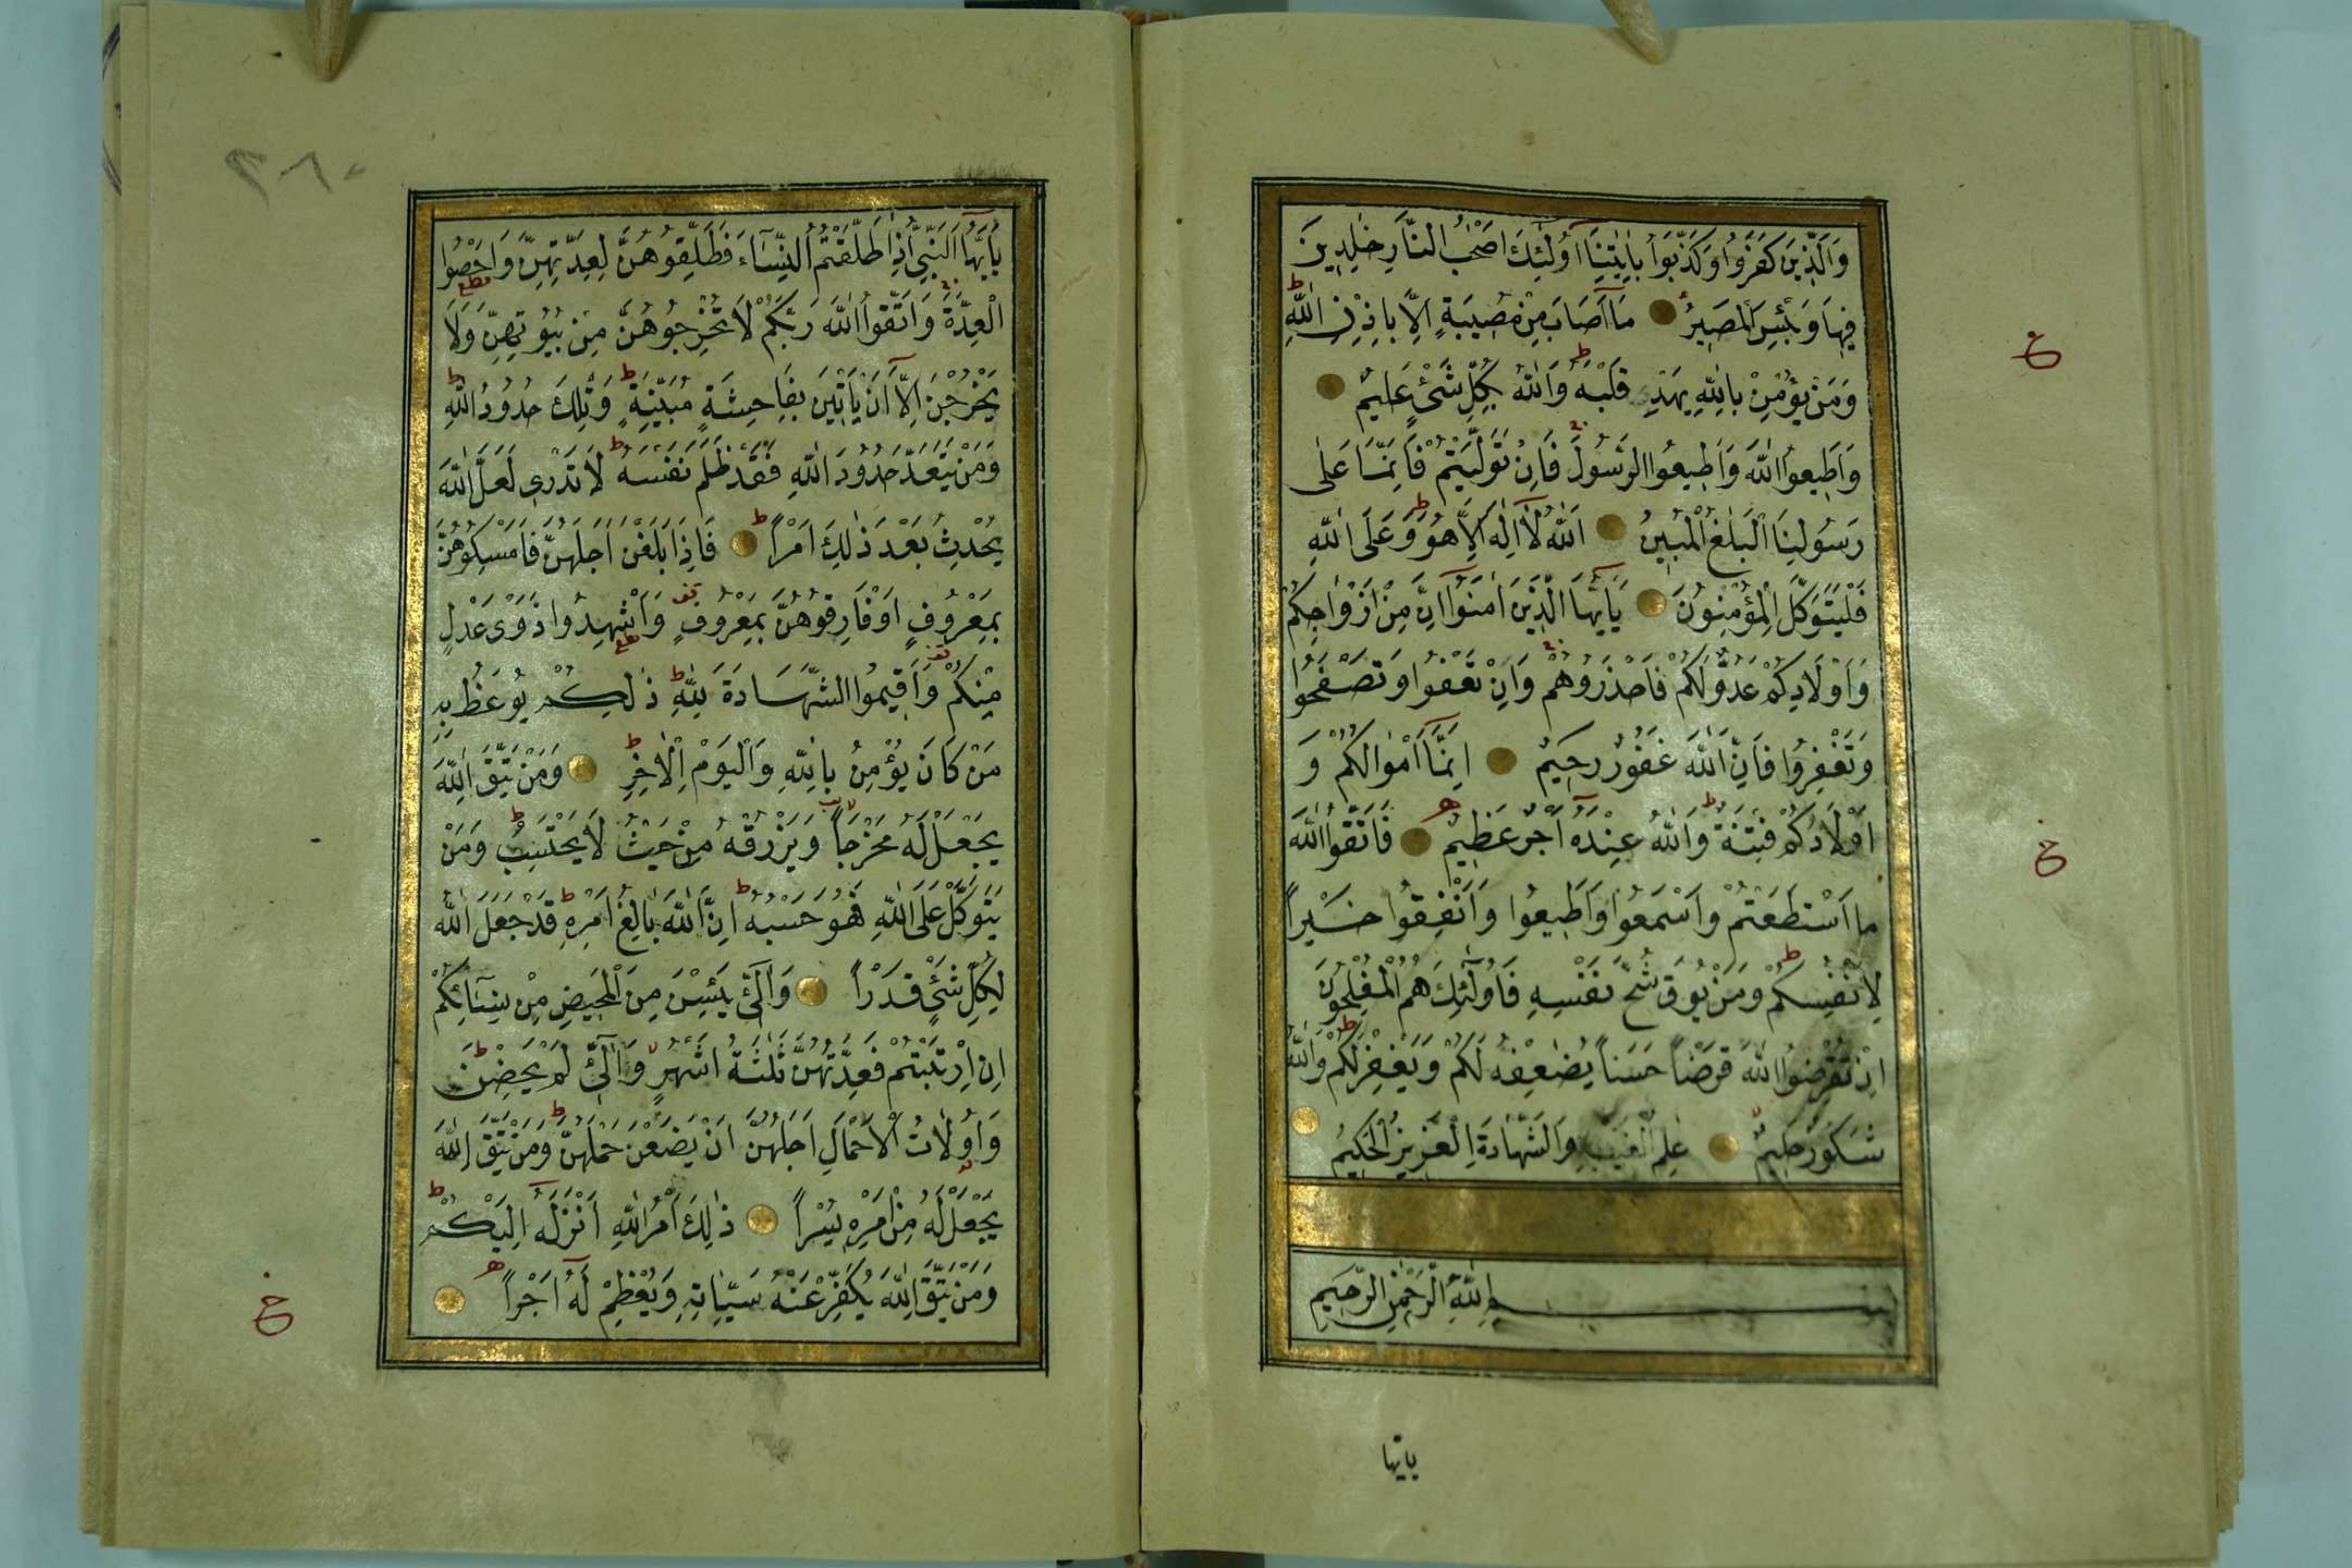 وَالَّذِينَ كَفَرُوا وَكَذَّبُوا بِاٰيٰتِنَآ اُولٰٓئِكَ اَصْحٰبُ النَّارِ خٰلِدِينَ
فِيهَا وَبِئْسَ الْمَصِيرُ مَآ اَصَابَ مِنْ مُصِيبَةٍ اِلَّا بِاِذْنِ اللّٰهِ
وَمَنْ يُؤْمِنْ بِاللّٰهِ يَهْدِ قَلْبَهُ وَاللّٰهُ بِكُلِّ شَىْءٍ عَلِيمٌ
وَاَطِيعُوا اللّٰهَ وَاَطِيعُوا الرَّسُولَ فَاِنْ تَوَلَّيْتُمْ فَاِنَّمَا عَلٰى
رَسُولِنَا الْبَلٰغُ الْمُبِينُ اَللّٰهُ لَآ اِلٰهَ اِلَّا هُوَ وَعَلَى اللّٰهِ
فَلْيَتَوَكَّلِ الْمُؤْمِنُونَ يَآاَيُّهَا الَّذِينَ اٰمَنُوآ اِنَّ مِنْ اَزْوَاجِكُمْ
وَاَوْلَادِكُمْ عَدُوًّا لَكُمْ فَاحْذَرُوهُمْ وَاِنْ تَعْفُوا وَتَصْفَحُوا
وَتَغْفِرُوا فَاِنَّ اللّٰهَ غَفُورٌ رَحِيمٌ اِنَّمَآ اَمْوَالُكُمْ وَ
اَوْلَادُكُمْ فِتْنَةٌ وَاللّٰهُ عِنْدَهُٓ اَجْرٌ عَظِيمٌ فَاتَّقُوا اللّٰهَ
مَا اسْتَطَعْتُمْ وَاسْمَعُوا وَاَطِيعُوا وَاَنْفِقُوا خَيْرًا
لِاَنْفُسِكُمْ وَمَنْ يُوقَ شُحَّ نَفْسِهِ فَاُولٰٓئِكَ هُمُ الْمُفْلِحُونَ
اِنْ تُقْرِضُوا اللّٰهَ قَرْضًا حَسَنًا يُضٰعِفْهُ لَكُمْ وَيَغْفِرْ لَكُمْ وَاللّٰهُ
شَكُورٌ حَلِيمٌ عٰلِمُ الْغَيْبِ وَالشَّهَادَةِ الْعَزِيزُ الْحَكِيمُ
بِسْمِ اللّٰهِ الرَّحْمٰنِ الرَّحِيمِ
يايها
ع
ع
٢٨٠
يَآاَيُّهَا النَّبِيُّ اِذَا طَلَّقْتُمُ النِّسَآءَ فَطَلِّقُوهُنَّ لِعِدَّتِهِنَّ وَاَحْصُوا
الْعِدَّةَ وَاتَّقُوا اللّٰهَ رَبَّكُمْ لَا تُخْرِجُوهُنَّ مِنْ بُيُوتِهِنَّ وَلَا
يَخْرُجْنَ اِلَّآ اَنْ يَأْتِينَ بِفَاحِشَةٍ مُبَيِّنَةٍ وَتِلْكَ حُدُودُ اللّٰهِ
وَمَنْ يَتَعَدَّ حُدُودَ اللّٰهِ فَقَدْ ظَلَمَ نَفْسَهُ لَا تَدْرِى لَعَلَّ اللّٰهَ
يُحْدِثُ بَعْدَ ذٰلِكَ اَمْرًا فَاِذَا بَلَغْنَ اَجَلَهُنَّ فَاَمْسِكُوهُنَّ
بِمَعْرُوفٍ اَوْ فَارِقُوهُنَّ بِمَعْرُوفٍ وَاَشْهِدُوا ذَوَىْ عَدْلٍ
مِنْكُمْ وَاَقِيمُوا الشَّهَادَةَ لِلّٰهِ ذٰلِكُمْ يُوعَظُ بِهِ
مَنْ كَانَ يُؤْمِنُ بِاللّٰهِ وَالْيَوْمِ الْاٰخِرِ وَمَنْ يَتَّقِ اللّٰهَ
يَجْعَلْ لَهُ مَخْرَجًا وَيَرْزُقْهُ مِنْ حَيْثُ لَا يَحْتَسِبُ وَمَنْ
يَتَوَكَّلْ عَلَى اللّٰهِ فَهُوَ حَسْبُهُ اِنَّ اللّٰهَ بَالِغُ اَمْرِهِ قَدْ جَعَلَ اللّٰهُ
لِكُلِّ شَىْءٍ قَدْرًا وَالّٰٓئِ يَئِسْنَ مِنَ الْمَحِيضِ مِنْ نِسَآئِكُمْ
اِنِ ارْتَبْتُمْ فَعِدَّتُهُنَّ ثَلٰثَةُ اَشْهُرٍ وَالّٰٓئِ لَمْ يَحِضْنَ
وَاُولَاتُ الْاَحْمَالِ اَجَلُهُنَّ اَنْ يَضَعْنَ حَمْلَهُنَّ وَمَنْ يَتَّقِ اللّٰهَ
يَجْعَلْ لَهُ مِنْ اَمْرِهِ يُسْرًا ذٰلِكَ اَمْرُ اللّٰهِ اَنْزَلَهُٓ اِلَيْكُمْ
وَمَنْ يَتَّقِ اللّٰهَ يُكَفِّرْ عَنْهُ سَيِّاٰتِهِ وَيُعْظِمْ لَهُٓ اَجْرًا
ع